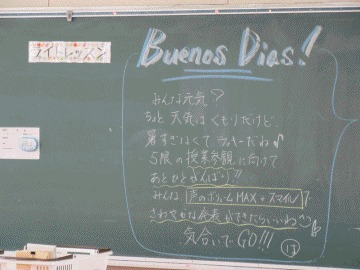 Buenos Dias!
ライトレッスン
みんな元気?
ちょっと天気はくもりだけど、
暑すぎなくてラッキーだね♪
5限の授業参観に向けて
あとひとがんばり!!
みんな 声のボリュームMAX+スマイルで
さわやかな発表ができたらいいね
気合いでGO!!!